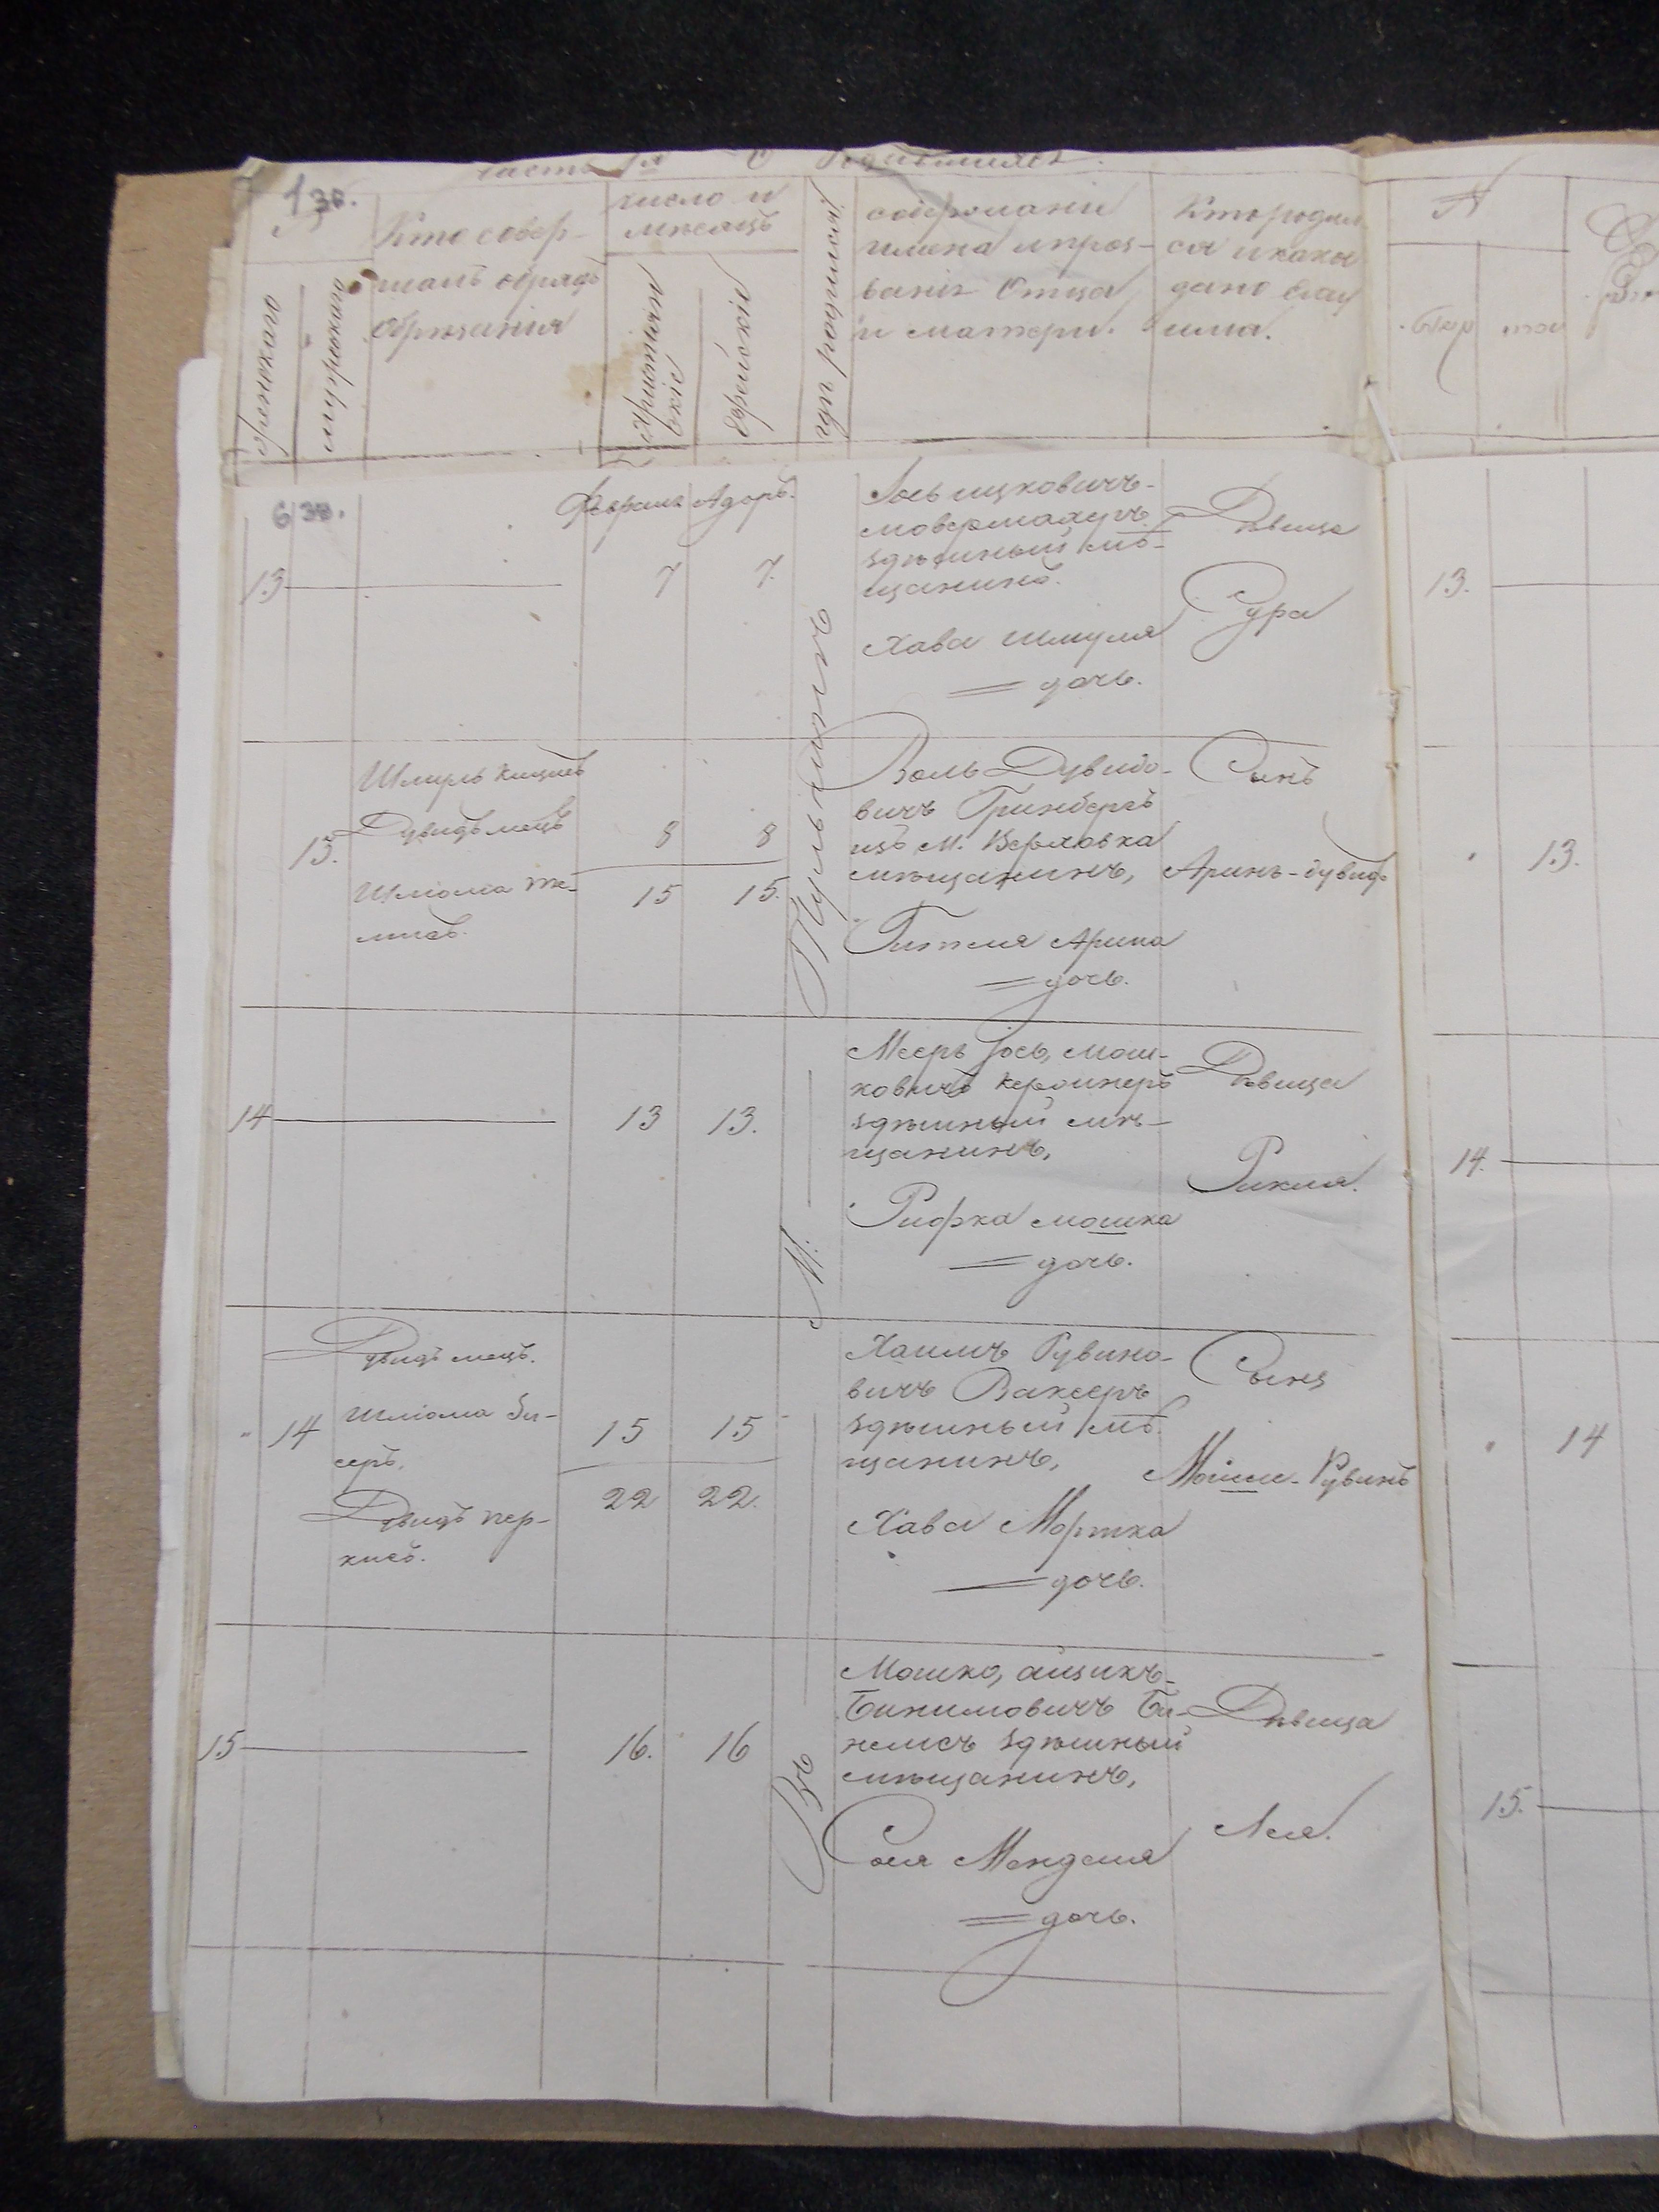 часть 1я О Родившихся.
130.
№
женскаго
мужескаго
Кто совер-
шалъ обрядъ
обрѣзанія
число и
мѣсяцъ
христіан
скіе
Еврейскіе
гдѣ родился
имена и проз-
ваніе Отца
и матери.
Кто родил
ся и какое
дано ему
има.
№
630.
Февраль Адаръ.
13
7
7.
Іось ицковичъ
здѣшный мѣ-
щанинъ.
Хава Шмуля
дочь.
Дѣвица
Сура
13.
13.
Дувидъ мецъ
Шліома
8
8
15
15.
Воль Дувидо-
вичъ Гринбергъ
изъ м. Верховка
мѣщанинъ,
Гитля Арина
дочь.
Сынъ
Аринъ-дувидъ
13.
14
13
13.
Меерь Іось, мош-
ковичъ
здѣшный мѣ-
щанинъ,
Рифка мошка
дочь.
Дѣвица
Рикля.
14.
14
Дувидъ мецъ.
Шліома Зи-
серъ.
Дувидъ пер-
кисъ.
15
15
22
22.
Хаимъ Рувино-
вичъ Ваксеръ
здѣшный мѣ-
щанинъ,
Хава Мортка
дочь.
Сынъ
Моише-Рувинъ
14
15
16.
16
Мошко, аицикъ-
Бинимовичъ Би-
немсъ здѣшный
мѣщанинъ,
Сося Менделя
дочь.
Дѣвица
Лея.
15.
Въ
М.